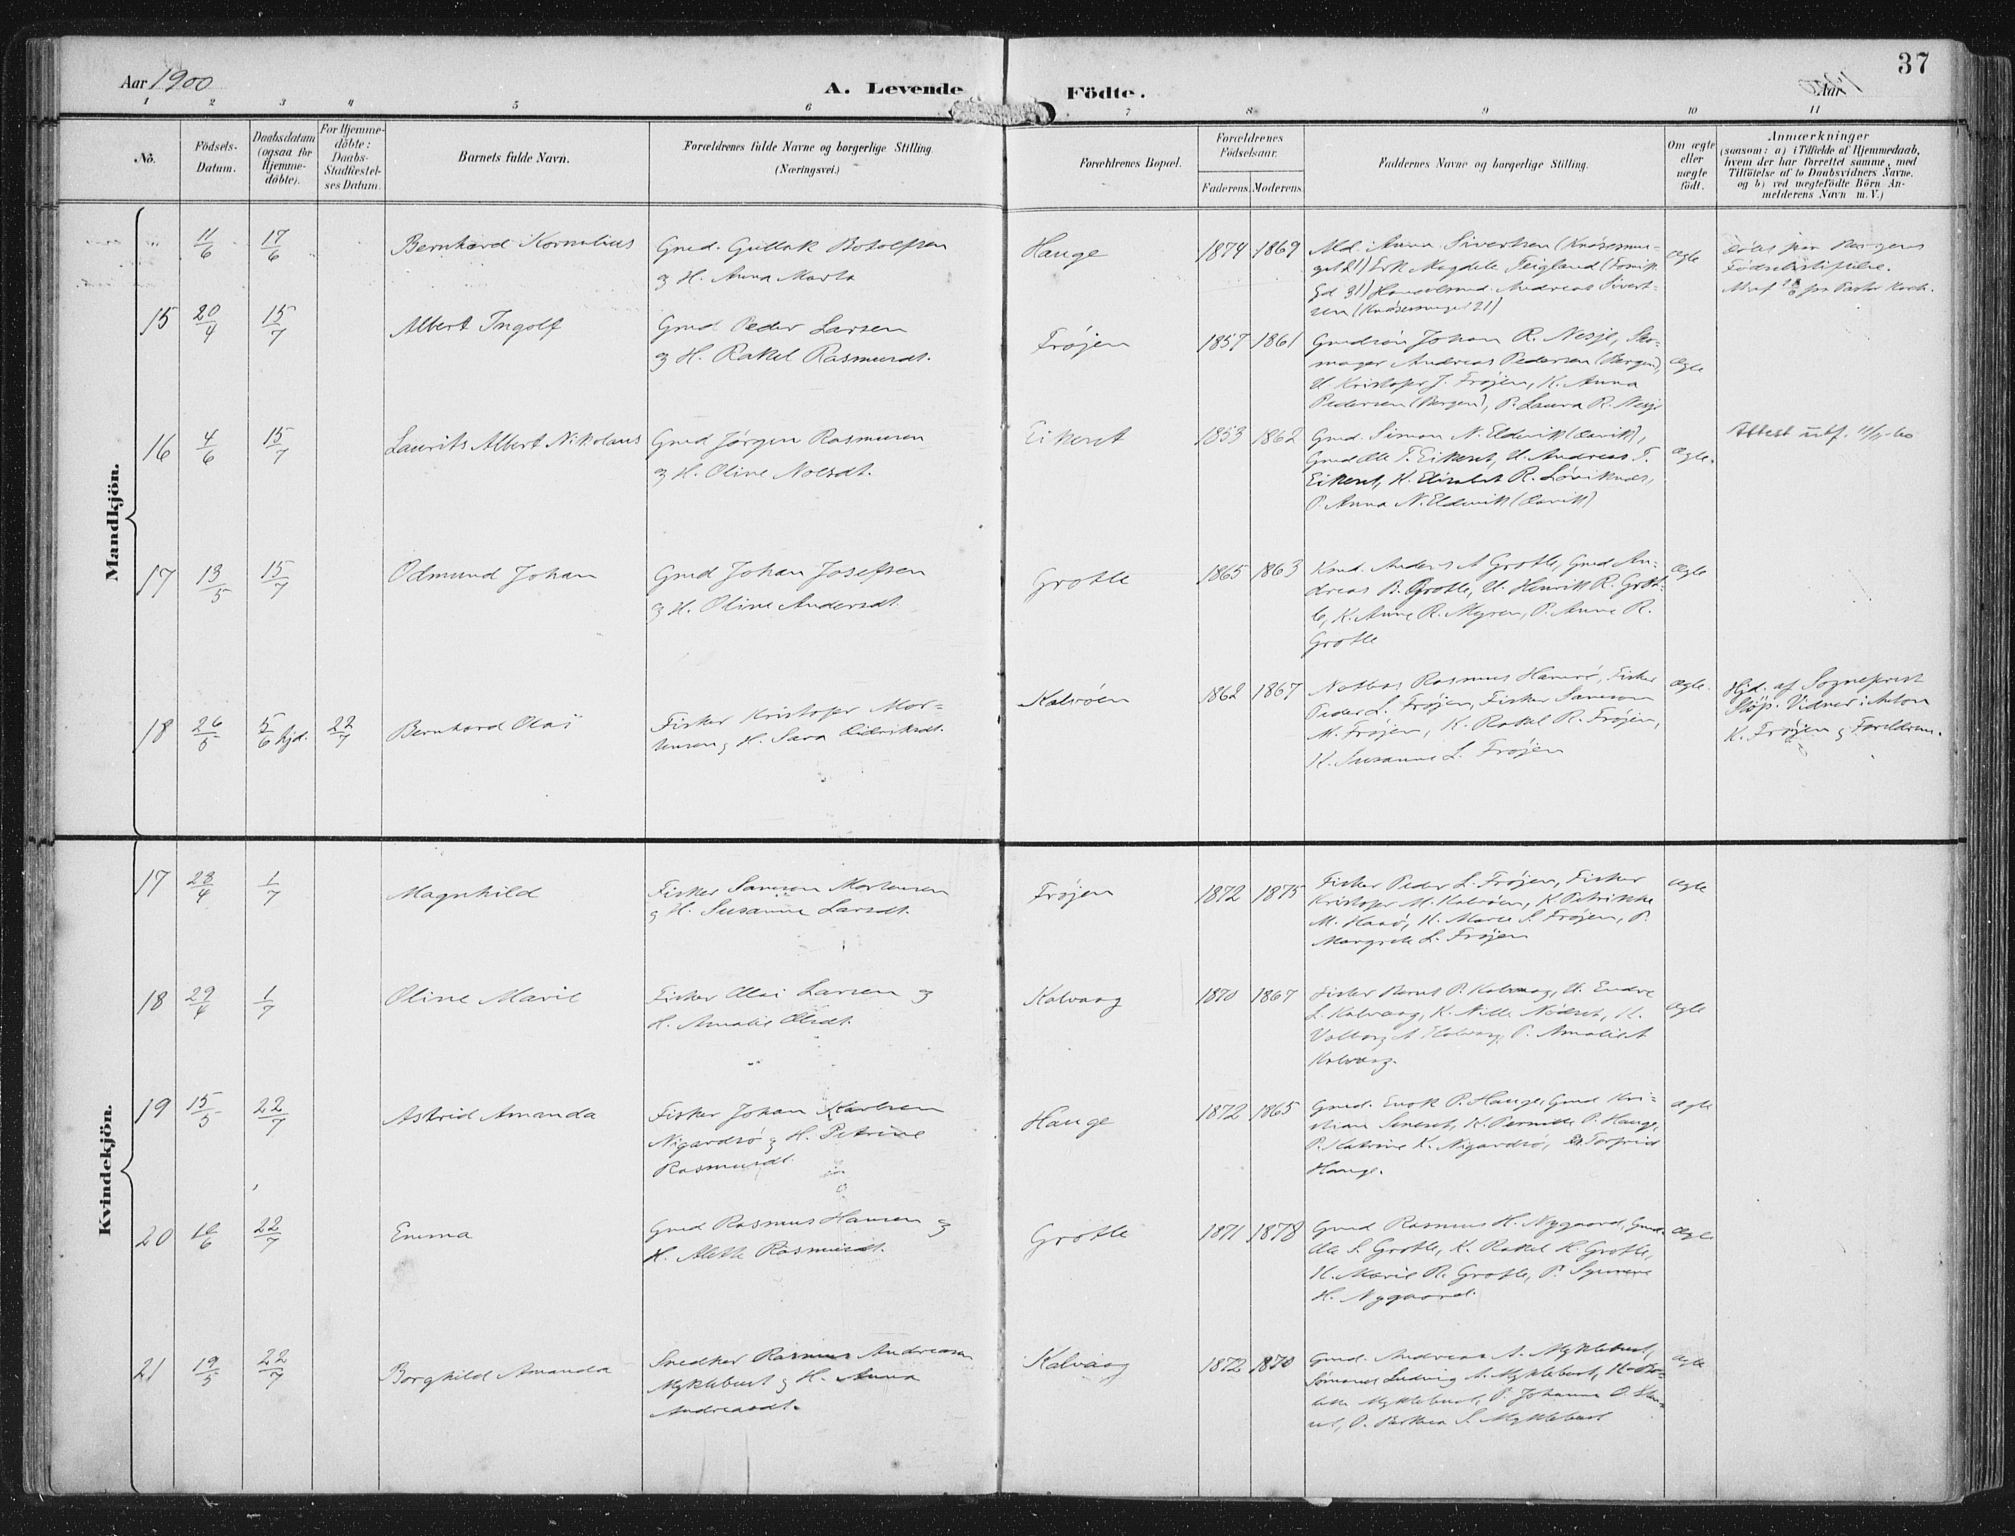 Aar 1900
A. Levende
Födte.
37
1 2 3 4 5 6 7 8 9 10 11
No.
Födsels-
Datum.
Daabsdatum
(ogsaa for
Hjemme-
döbte).
For Hjemme-
döbte:
Daabs-
Stadfæstel-
ses Datum.
Barnets fulde Navn.
Forældrenes fulde Navne og borgerlige Stilling.
(Næringsvei.)
Forældrenes Bopæl.
Forældrenes
Födselsaar.
Faderens. Moderens.
Faddernes Navne og borgerlige Stilling.
Om ægte
eller
uægte
födt.
Anmærkninger
(saasom: a) i Tilfælde af Hjemmedaab,
hvem der har forrettet samme, med
Tilföielse af to Daabsvidners Navne.
og b) ved uægtefödte Börn An-
melderens Navn m. V.)
Mandkjön.
11/6 17/6
Bernhard Kornelius
Gmd. Gullak Botolfsen
og H. Anna Marta
Hauge
1874 1869
Md. Anna Sivertsen (Knøsesmu-
get 21) Erk Magdele Teigland
Gd 31) Andreas Sivert-
sen (Knøsesmuget 21)
Ægte
Født paa Bergens
Fødselsstiftelse.
15 20/4 15/7
Albert Ingolf
Gmd Peder Larsen
og H. Rakel Rasmusdt.
Frøjen
1857 1861
Gmdsøn Johan R. Nesje, Sko-
mager Andreas Pedersen (Bergen),
U Kristofer J. Frøjen, K. Anna
Pedersen (Bergen), P. Laura R. Nesje
Ægte
16 4/6 15/7
Laurits Albert Nikolaus
Gmd Jørgen Rasmusen
og H. Oline Nolsdt.
Eikeset
1853 1862
Gmd. Simon N. Eldevik (Davik),
Gmd Ole T. Eikeset, U. Andreas T.
Eikeset, K. Elisabet R. Løviknes,
P. Anna N. Eldevik (Davik)
Ægte.
Attest utf. 11/11-60
17 13/5 15/7
Odmund Johan
Gmd Johan Josefsen
og H. Oline Andersdt.
Grotle
1865 1863
Kmd. Anders A Grotle, Gmd An-
dreas B. Grotle, U. Henrik R. Grot-
le, K. Anne R. Myren, P. Anne R.
Grotle
Ægte
18 26/5 5/6 hjd. 22/7
Bernhard Olai
Fisker Kristofer Mor-
tensen og H. Sara Didriksdt.
Kalvøen
1862 1867
Notbas Rasmus Hamre, Fisker
Peder L. Frøjen, Fisker Samson
M. Frøjen, K. Rakel R. Frøjen,
K. Susanne L. Frøjen
Ægte.
Hjd. af Sogneprest
Vidner: Anton
K. Frøjen og Forældrene.
Kvindekjön.
17 23/4 1/7
Magnhild
Fisker Samson Mortensen
og H. Susanne Larsdt.
Frøjen
1872 1875
Fisker Peder L. Frøjen, Fisker
Kristofer M. Kalvøen, K Petrikke
M. Haasø, K. Marie S. Frøjen, P.
Margrete L. Frøjen
Ægte
18 29/4 1/7
Oline Marie
Fisker Olai Larsen og
H. Amalie Olsdt.
Kalvaag
1870 1867
Fisker Bernt P. Kalvaag, U. Endre
L. Kalvaag, K. Nille Nødset, K.
Valborg A Kalvaag, P. Amalie A
Kalvaag.
Ægte
19 15/5 22/7
Astrid Amanda
Fisker Johan Karlsen
Nigardsø og H. Petrine
Rasmusdt.
Hauge
1872 1865
Gmd. Enok P. Hauge, Gmd Kri-
stian Seneset, K. Pernille P. Hauge,
P. Katrine K. Nigardsø, Torfrid
Hauge.
Ægte
20 16/6 22/7
Emma
Gmd Rasmus Hansen og
H. Alette Rasmusdt.
Grotle
1871 1878
Gmd Rasmus H. Nygaard, Gmd.
Ole S. Grotle, K. Rakel H. Grotle,
K. Marie R. Grotle, P. Synneve
H. Nygaard.
Ægte
21 19/5 22/7
Borghild Amanda
Snedker Rasmus Andreasen
Myklebust og H. Anna
Andreasdt.
Kalvaag
1872 1870
Gmd. Andreas A. Myklebust,
Tømmerm Ludvig A. Myklebust,
Myklebust, P. Johanne O.
P. Berthea S. Myklebust
Ægte